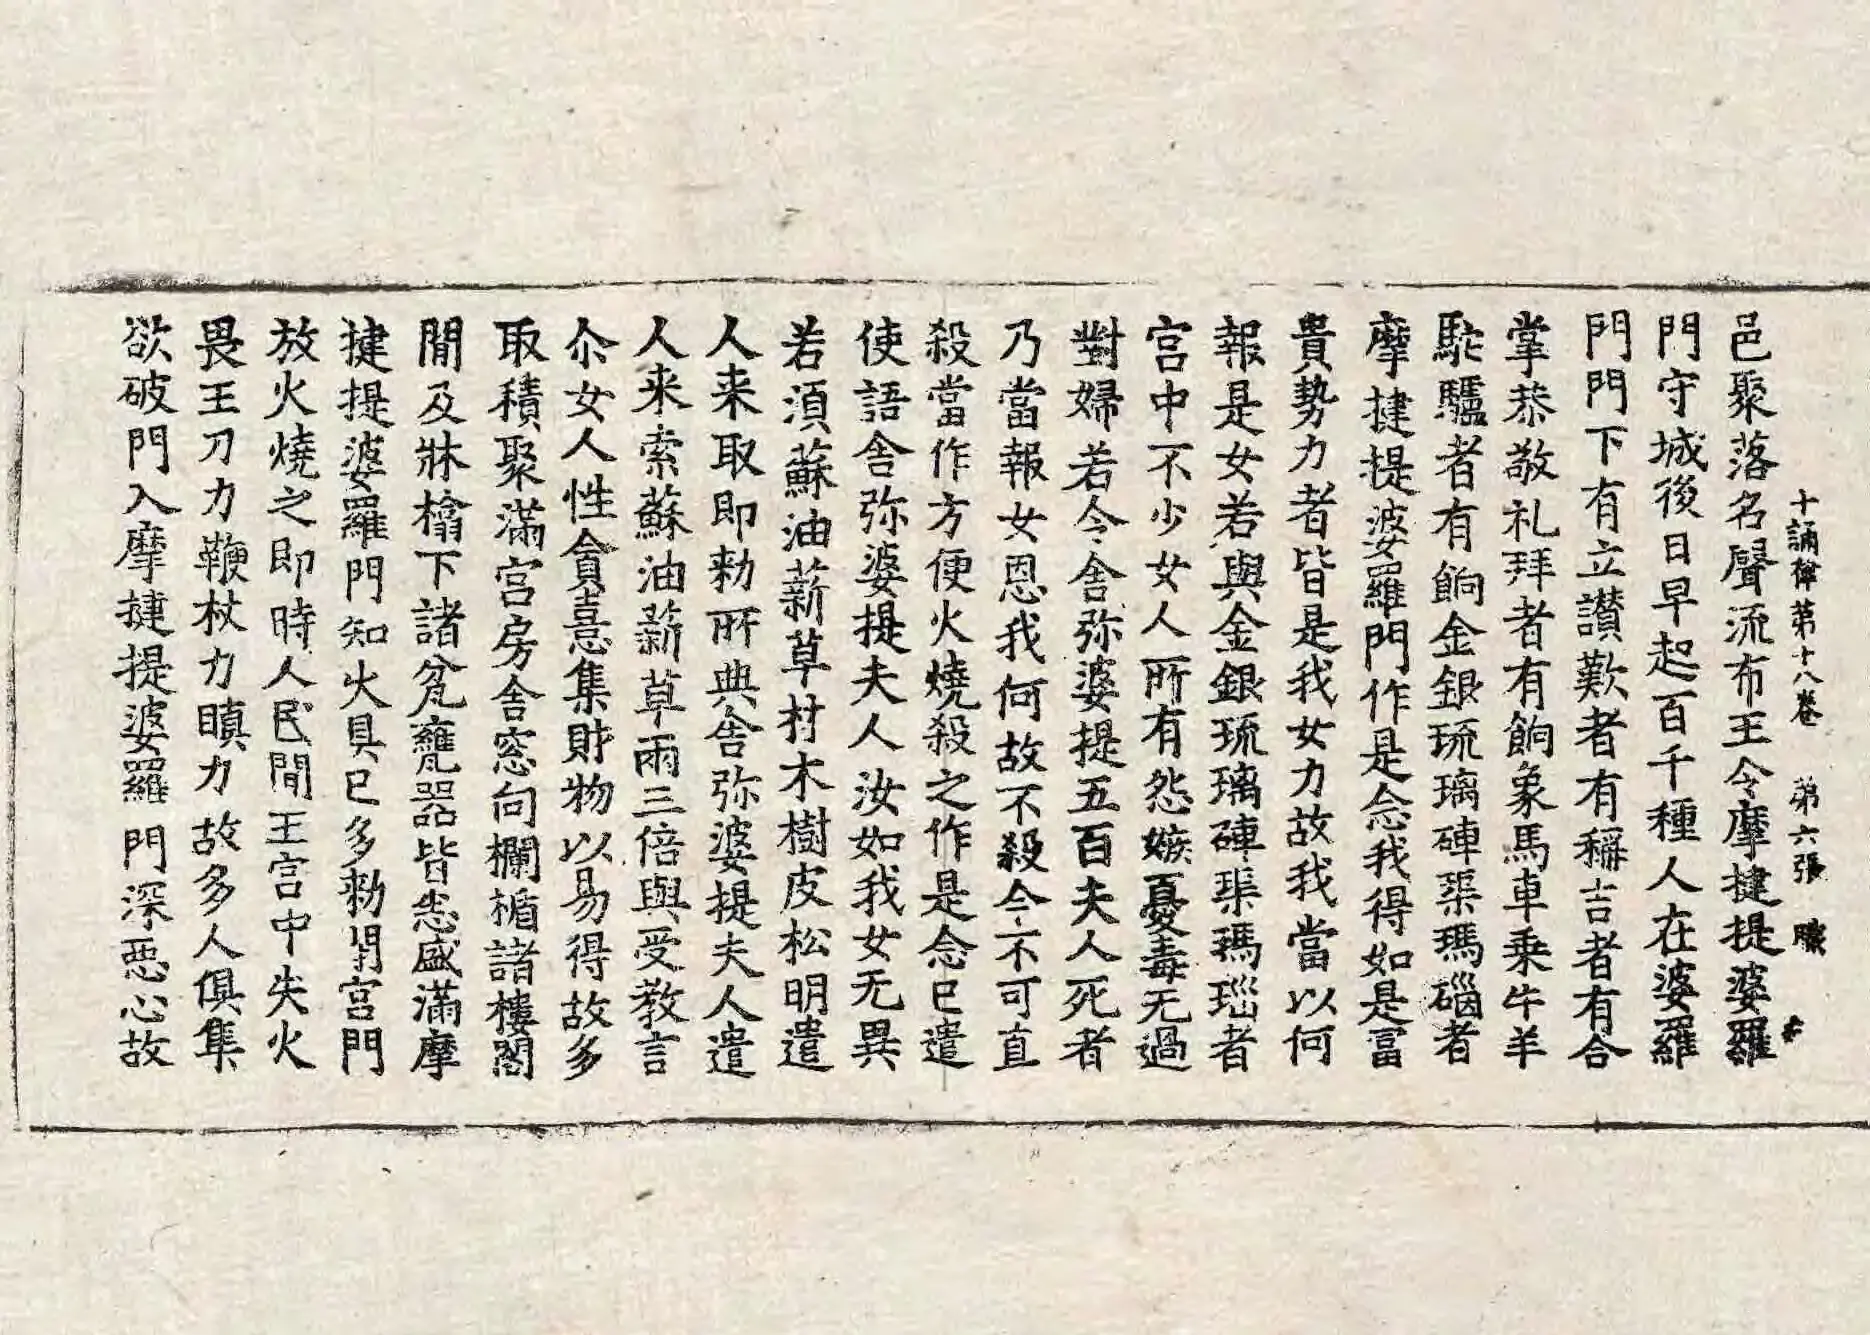 十誦律第十八卷　第六張
邑聚落名聲流布王令摩揵提婆羅
門守城後日早起百千種人在婆羅
門門下有立讃歎者有稱吉者有合
掌恭敬礼拜者有餉象馬車乗牛羊
駝驢者有餉金銀琉璃硨渠瑪碯者
摩揵提婆羅門作是念我得如是冨
貴勢力者皆是我女力故我當以何
報是女若與金銀琉璃硨渠瑪瑙者
宮中不少女人所有怨嫉憂毒无過
對婦若今舍弥婆提五百夫人死者
乃當報女恩我何故不殺今不可直
殺當作方便火燒殺之作是念已遣
使語舍弥婆提夫人汝如我女无異
若須蘇油薪草材木樹皮松明遣
人来取即勑所典舍弥婆提夫人遣
人来索蘇油薪草兩三倍與受教言
尒女人性貪憙集財物以易得故多
取積聚滿宮房舍窓向欄楯諸樓閣
閒及牀橝下諸瓫甕器皆悉盛滿摩
揵提婆羅門知火具已多勑閇宮門
放火燒之即時人民閒王宮中失火
畏王刀力鞭杖力瞋力故多人俱集
欲破門入摩揵提婆羅門深惡心故